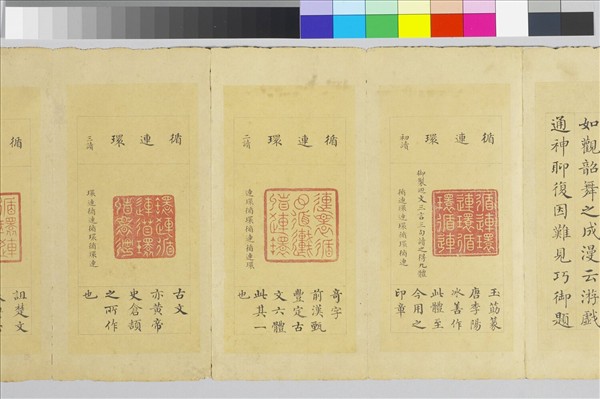 如觀韶舞之成漫云游戲
通神聊復因難見巧御題
循連環
初讀
御製迴文三言三句讀之得九體
玉筯篆
唐李陽
冰善作
此體至
今用之
印章
循連環
二讀
連環循環循連循連環
奇字
前漢甄
豐定古
文六體
此其一
也
循連環
三讀
環連循連循環循環連
古文
亦黃帝
史倉頡
之所作
也
循
詛楚文